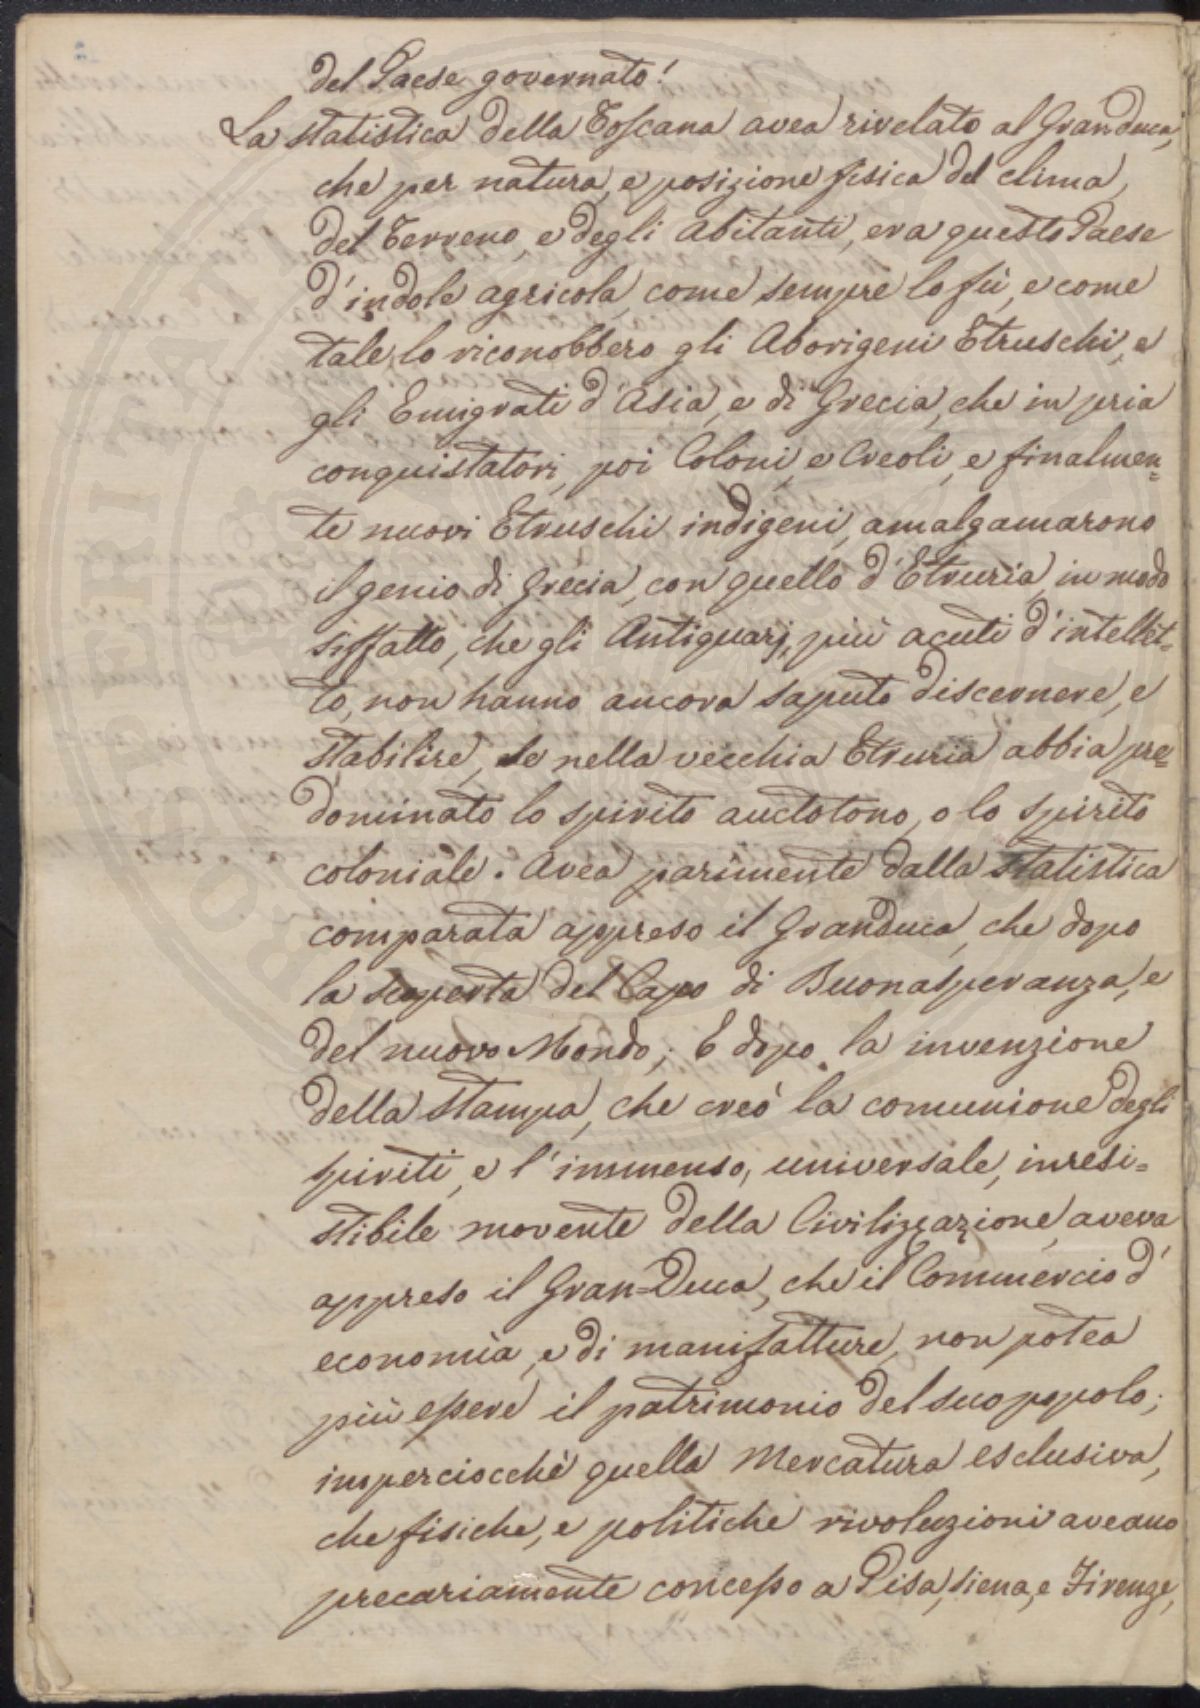 del Paese governato!
La statistica della Toscana avea rivelato al Granduca,
che per natura, e posizione fisica del clima,
del Terreno, e degli Abitanti, era questo Paese
d'indole agricola, come sempre lo fù, e come
tale lo riconobbero gli Aborigeni Etruschi, e
gli Emigrati d'Asia, e di Grecia, che in pria
conquistatori, poi Coloni, e Creoli, e finalmen=
te nuovi Etruschi indigeni, amalgamarono
il genio di Grecia, con quello d'Etruria, in modo
siffatto, che gli Antiquarj, più acuti d'intellet=
to, non hanno ancora saputo discernere, e
stabilire, se nella vecchia Etruria abbia pre=
dominato lo spirito auctotono, o lo spirito
coloniale. Avea parimente dalla statistica
comparata appreso il Granduca, che dopo
la scoperta del Capo di Buonasperanza, e
del nuovo Mondo; E dopo la invenzione
della stampa, che creò la comunione degli
spiriti, e l'immenso, universale, inresi=
stibile movente della Civilizzazione, aveva
appreso il Gran=Duca, che il Commercio d'
economìa, e di manifatture, non potea
più essere il patrimonio del suo popolo;
imperciocchè quella Mercatura esclusiva,
che fisiche, e politiche rivoluzioni aveano
precariamente concesso a Pisa, Siena, e Firenze,